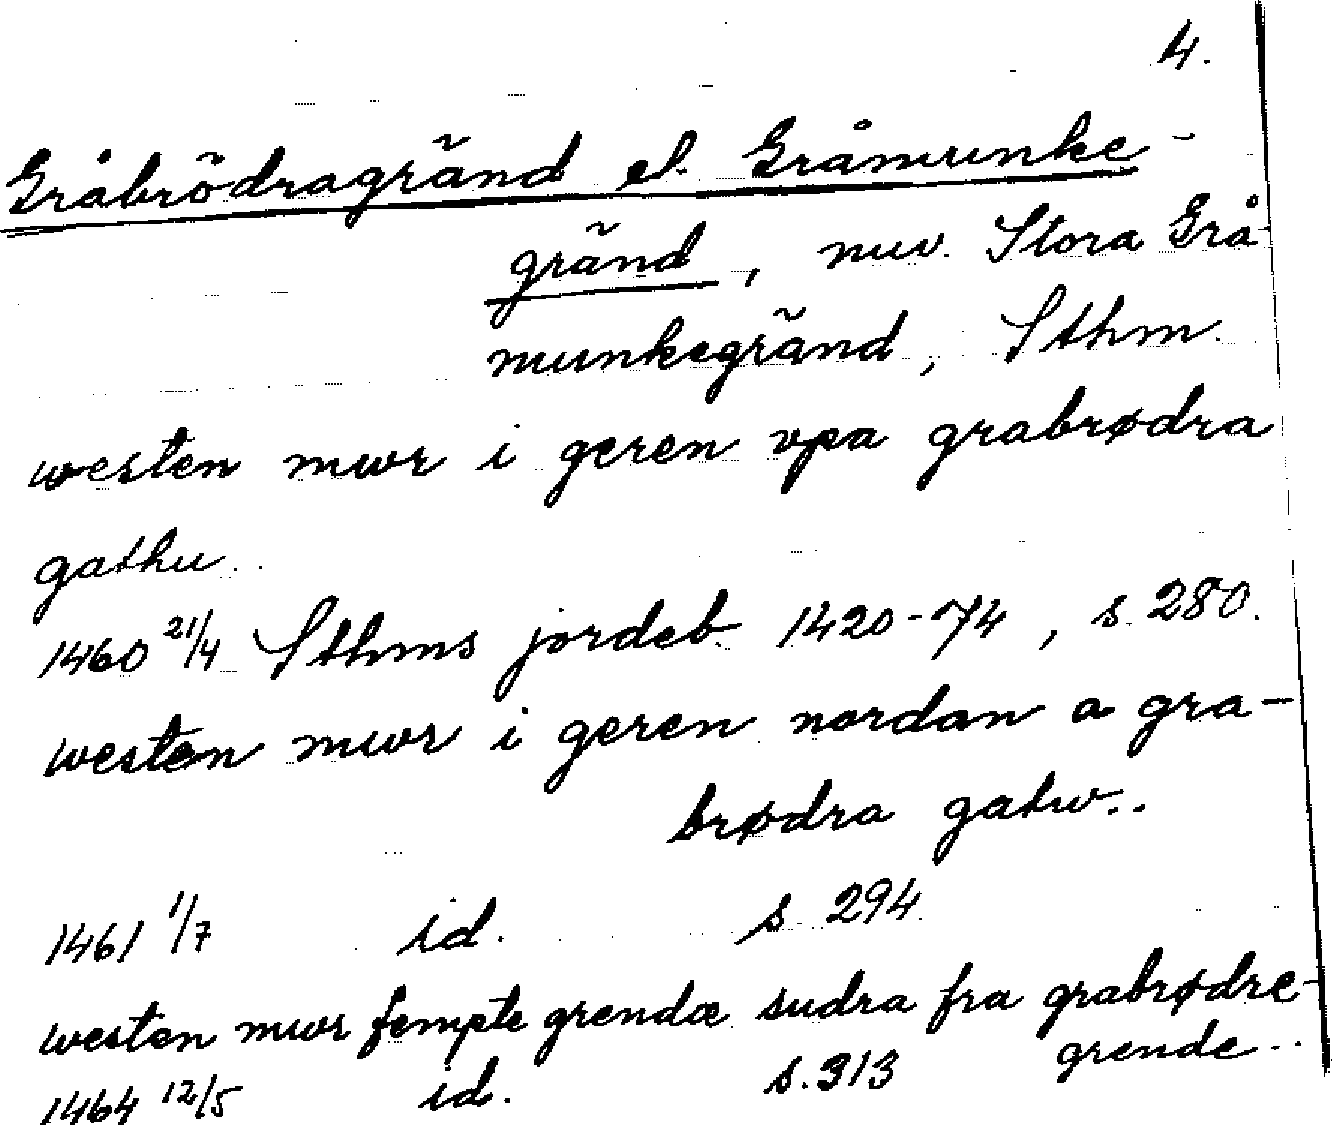 4.
Gråbrödragränd el. Gråmunke-
gränd, nuv. Stora Grå-
munkegränd, Sthm.
westen mwr i geren vpa grabrødra
gathu..
1460 21/4 Sthms jordeb. 1420-74, s. 280.
westen mwr i geren nordan a gra-
brødra gatw..
1461 1/7 id. s. 294.
westen mwr fempte grendæ sudra fra grabrødre-
grende..
1464 12/5 id. s. 313